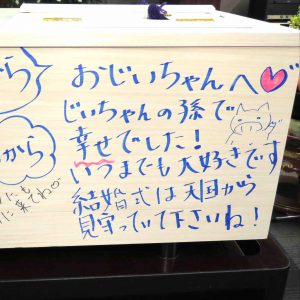 おじいちゃんへ
じいちゃんの孫で
幸せでした!
いつまでも大好きです
結婚式は天国から
見守っていて下さいね!
から
から
にも
に来てね